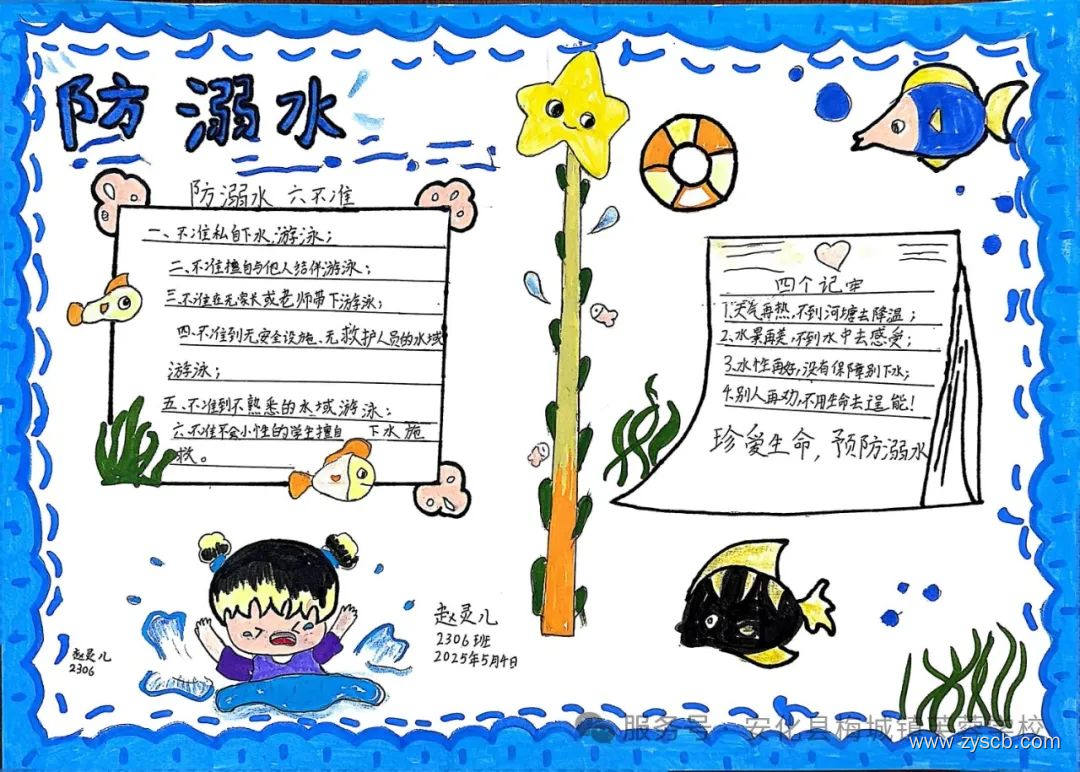 防溺水
防溺水 六不准
一、不准私自下水游泳；
二、不准擅自与他人结伴游泳；
三、不准在无家长或老师带下游泳；
四、不准到无安全设施、无救护人员的水域
游泳；
五、不准到不熟悉的水域游泳；
六、不准不会水性的学生擅自 下水施
救。
四个记牢
1.天气再热，不到河塘去降温；
2.水果再差，不到水中去感受；
3.水性再好，没有保障别下水；
4.别人再劝，不用生命去逞能！
珍爱生命，预防溺水
赵灵儿
2306班
2025年5月4日
赵灵儿
2306
服务号·安化县梅城镇芙蓉学校
www.zyscb.com